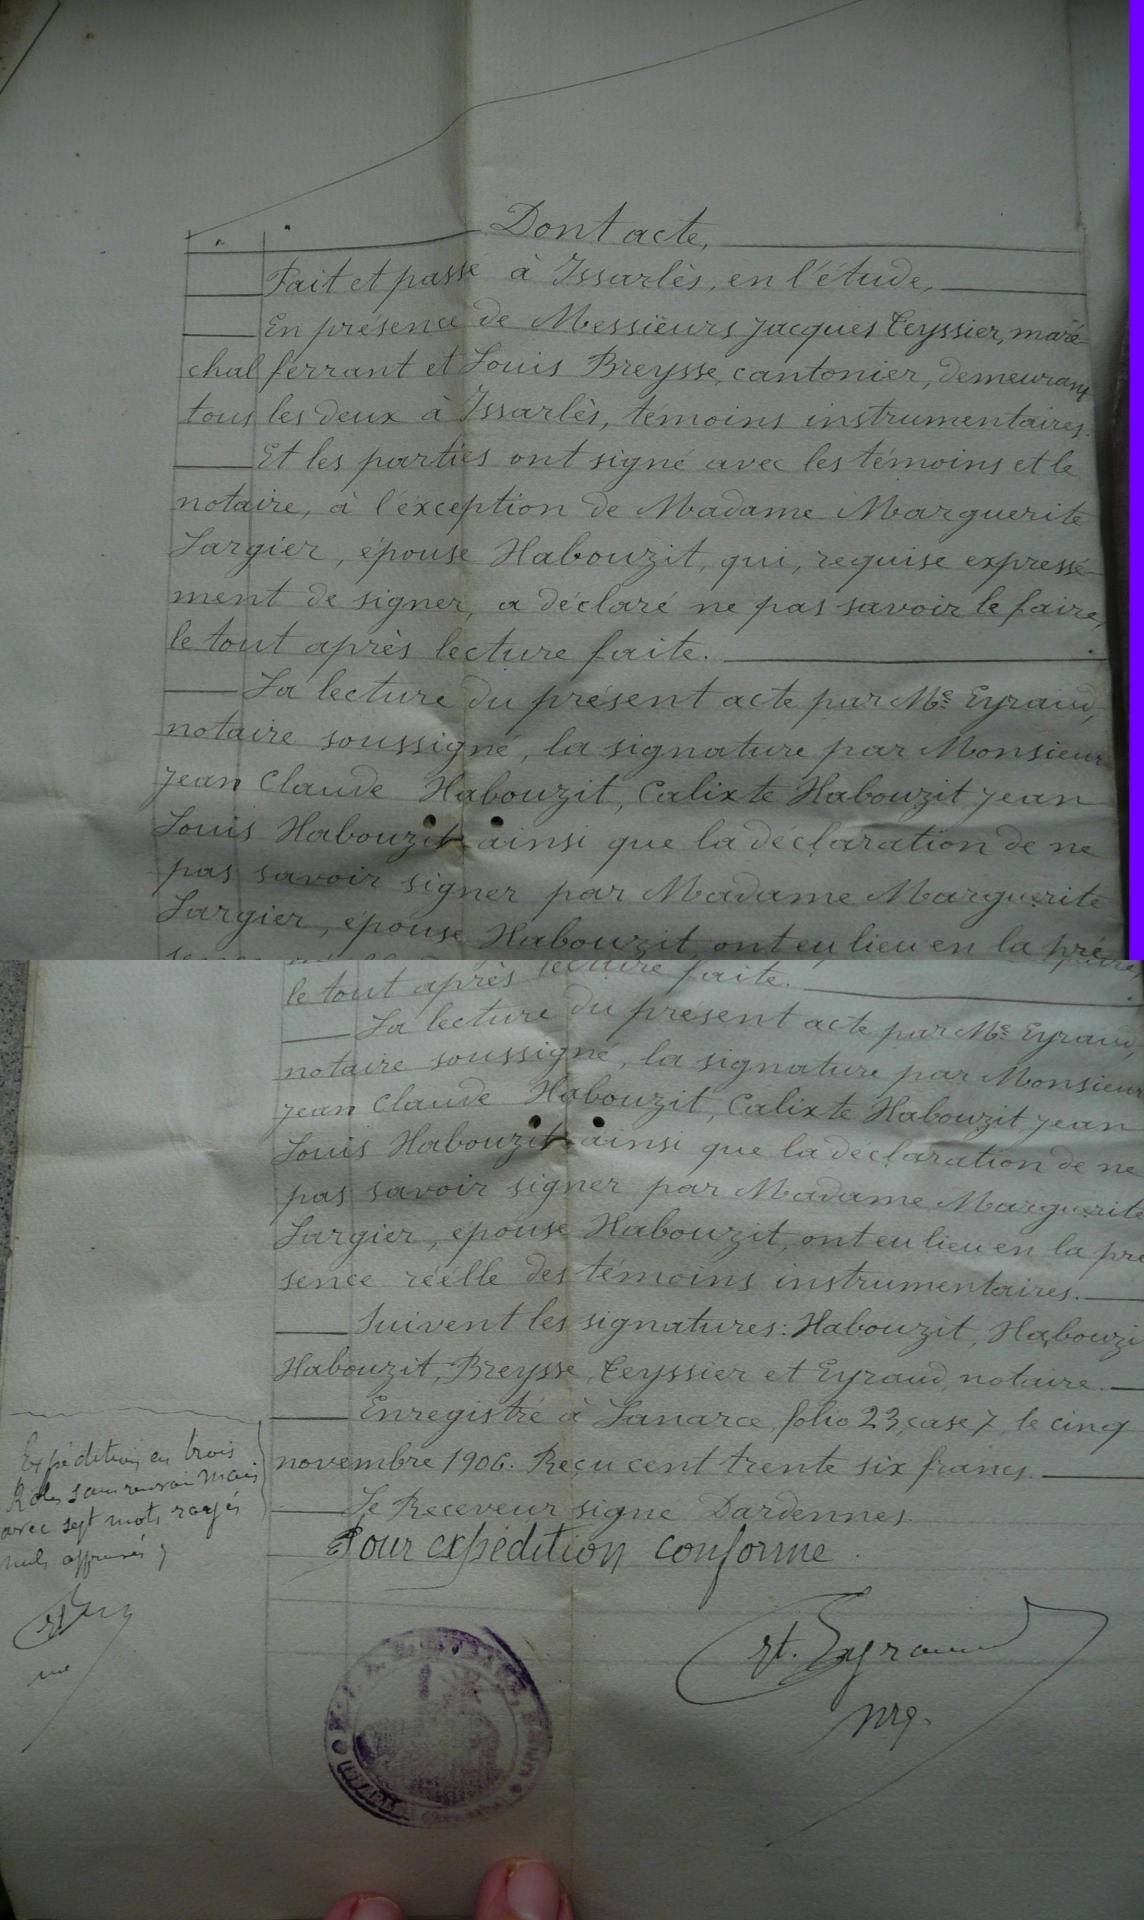 Dont acte,
Fait et passé à Issarlès, en l'étude,
En présence de Messieurs Jacques Teyssier, maré-
chal ferrant et Louis Breysse, cantonier, demeurant
tous les deux à Issarlès, témoins instrumentaires.
Et les parties ont signé avec les témoins et le
notaire, à l'éxception de Madame Marguerite
Largier, épouse Habouzit, qui, requise expressé-
ment de signer, a déclaré ne pas savoir le faire,
le tout après lecture faite.
La lecture du présent acte par Me Eyraud,
notaire soussigné, la signature par Monsieur
Jean Claude Habouzit, Calixte Habouzit Jean
Louis Habouzit ainsi que la déclaration de ne
pas savoir signer par Madame Marguerite
Largier, épouse Habouzit, ont eu lieu en la pré
le tout après lecture faite.
La lecture du présent acte par Me Eyraud,
notaire soussigné, la signature par Monsieur
Jean Claude Habouzit, Calixte Habouzit Jean
Louis Habouzit ainsi que la déclaration de ne
pas savoir signer par Madame Marguerite
Largier, épouse Habouzit, ont eu lieu en la pré
sence réelle des témoins instrumentaires.
Suivent les signatures: Habouzit, Habouzi
Habouzit, Breysse, Teyssier et Eyraud, notaire
Enregistré à Lanarce, folio 23, case 7 le cinq
novembre 1906. Reçu cent trente six francs.
Le Receveur signé Dardennes
Pour expédition conforme.
Expédition en trois
Rôles sans renvoi mais
avec sept mots rayés
nuls
rt. Eyraud
nre.